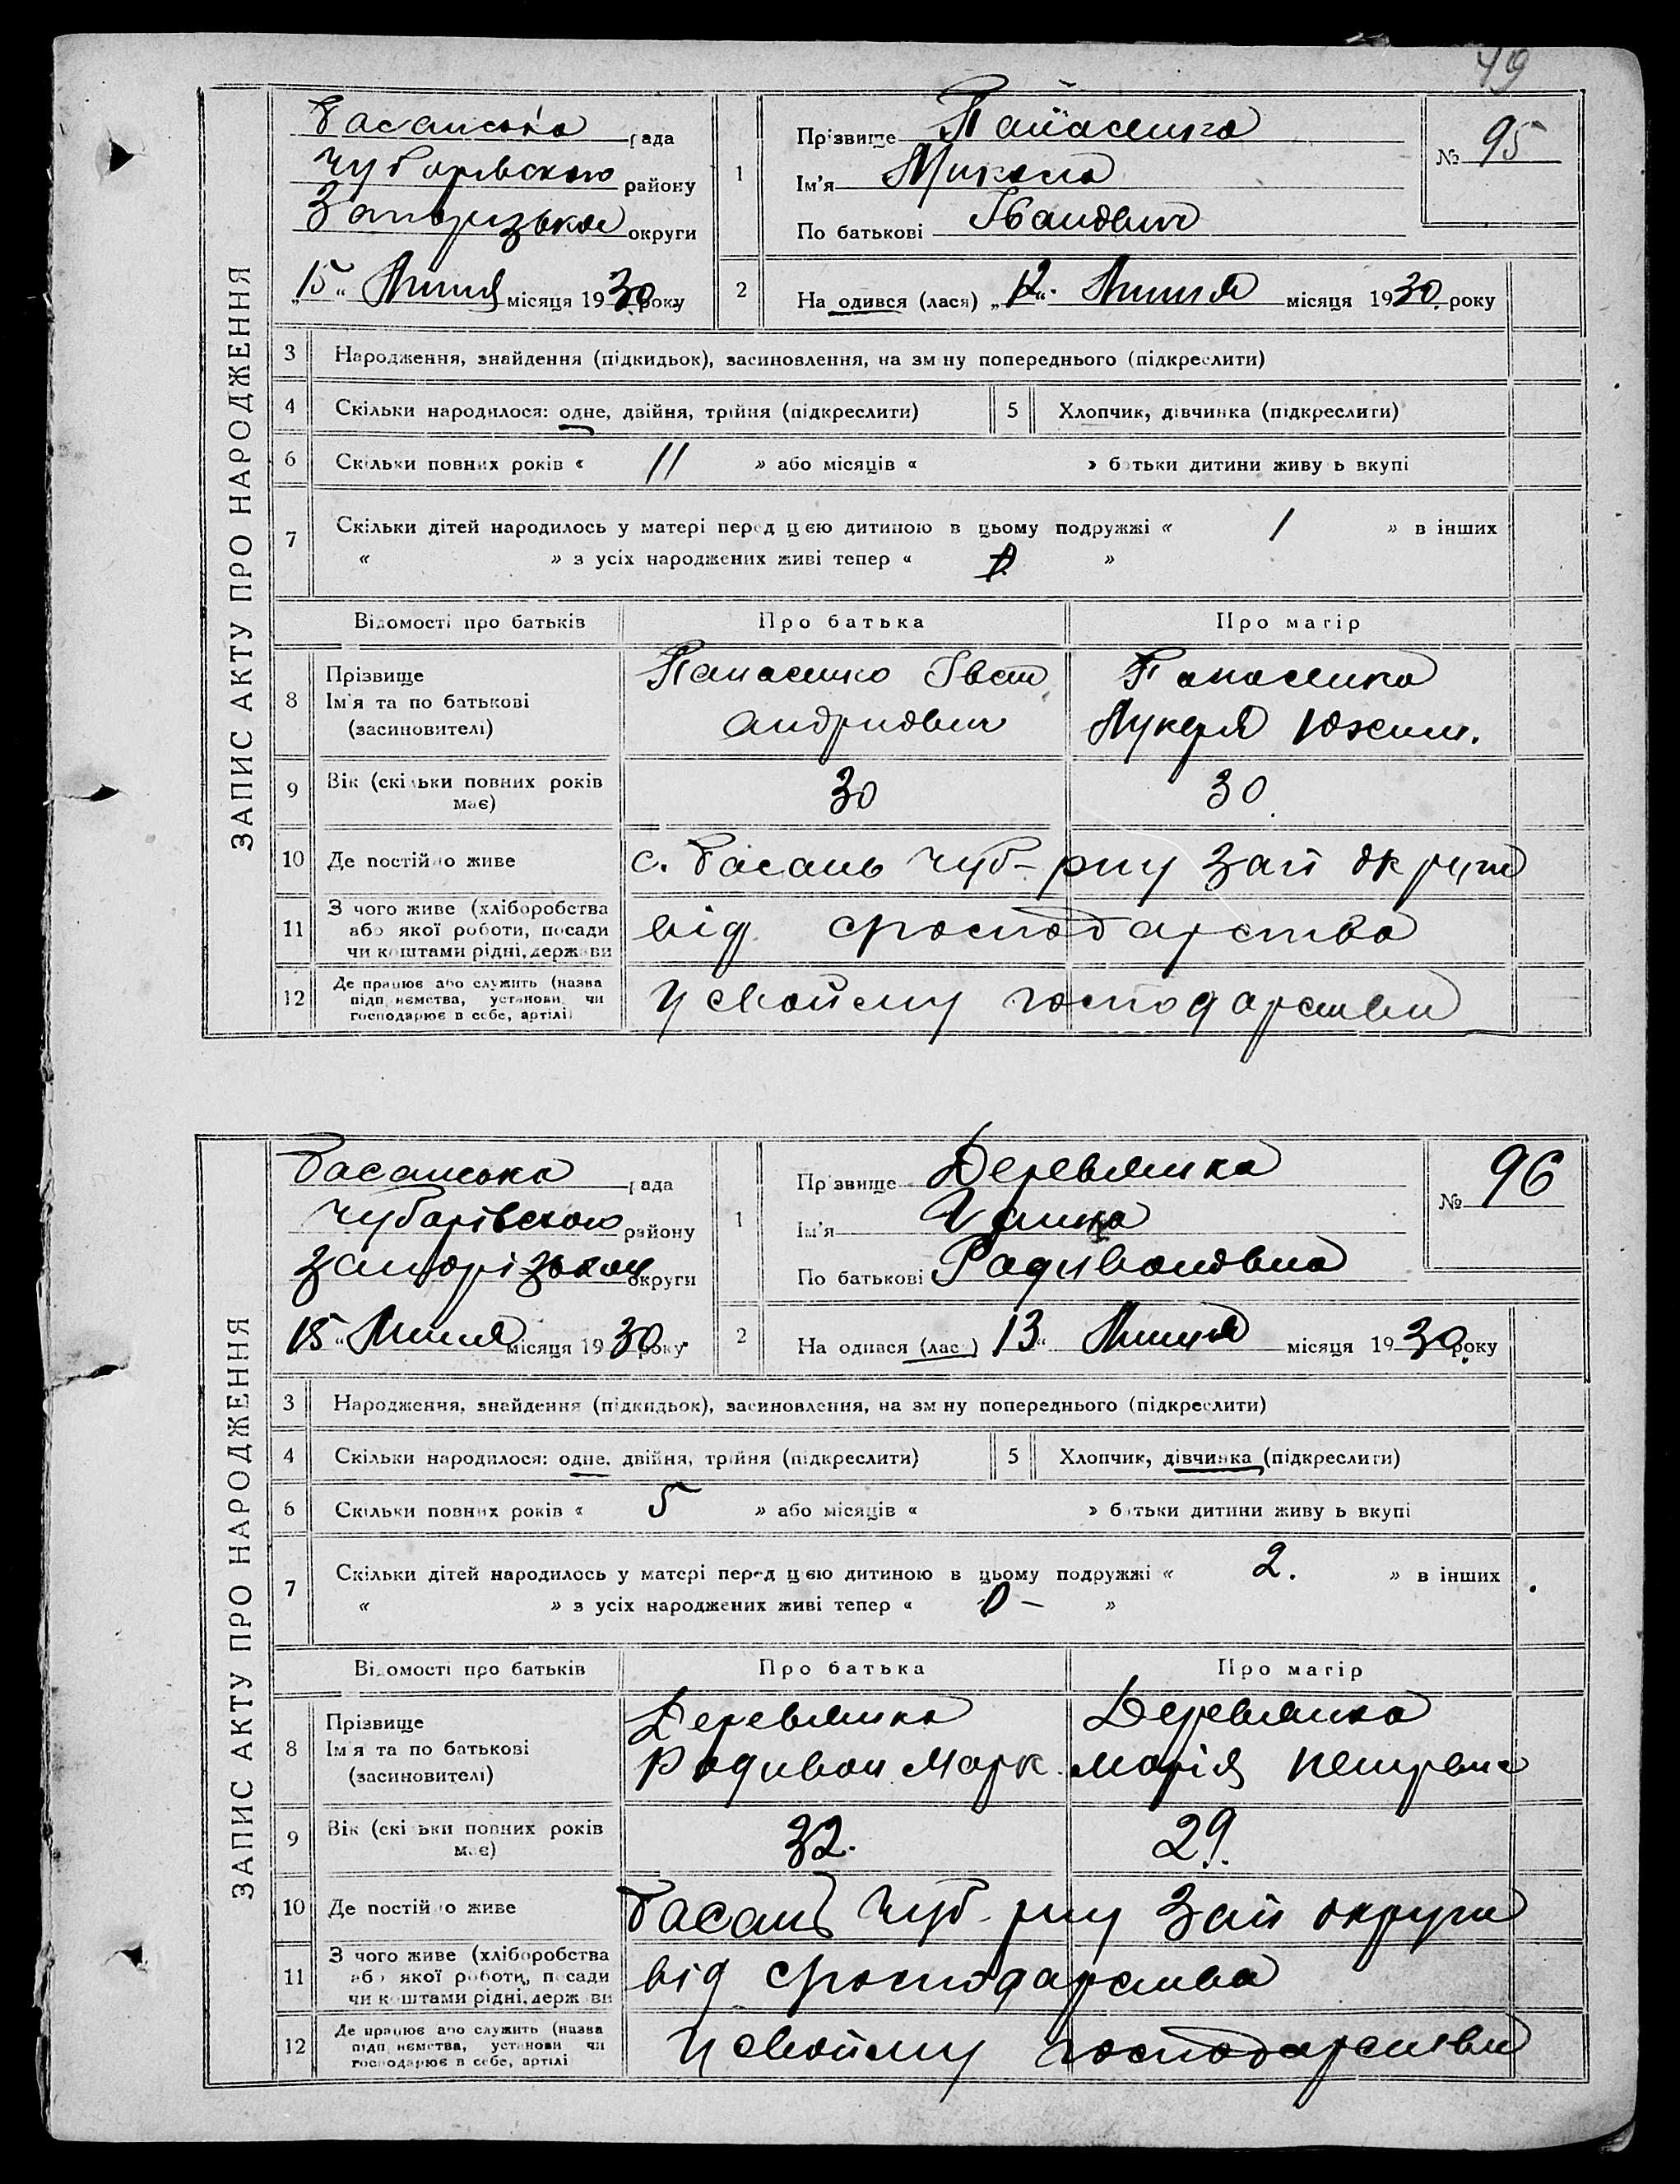 49
ЗАПИС АКТУ ПРО НАРОДЖЕННЯ
Басанська рада
Чубарівського району
Запоризької округи
„15“ Липня місяця 1930 року
1
Прізвище Панасенко
Ім'я Микола
По батькові Іванович
№ 95
2
На одився (лася) „12“ Липня місяця 1930 року
3 Народження, знайдення (підкидьок), засиновлення, на зміну попереднього (підкреслити)
4 Скільки народилося: одне, двійня, трійня (підкреслити)
5 Хлопчик, дівчинка (підкреслити)
6 Скільки повних років « 11 » або місяців « » батьки дитини живуть вкупі
7 Скільки дітей народилось у матері перед цією дитиною в цьому подружжі « 1 » в інших
« » з усіх народжених живі тепер « »
Відомості про батьків Про батька Про матір
8 Прізвище
Ім'я та по батькові
(засиновителі)
Панасенко Іван
Андрійович
Панасенко
Лукерія
9 Вік (скільки повних років
має)
30 30
10 Де постійно живе с. Басань Чуб-рну Зап округи
11 З чого живе (хліборобства
або якої роботи, посади
чи коштами рідні, держави
від господарства
12 Де працює або служить (назва
підприємства, установи чи
господарює в себе, артілі)
у свойому господарстві
ЗАПИС АКТУ ПРО НАРОДЖЕННЯ
Басанська рада
Чубарівського району
Запорізької округи
15 “ Липня місяця 1930 року
1
Прізвище Деревянко
Ім'я Ганна
По батькові Радивоновна
№ 96
2
На одився (лася) 13 “ Липня місяця 1930 року
3 Народження, знайдення (підкидьок), засиновлення, на зміну попереднього (підкреслити)
4 Скільки народилося: одне, двійня, трійня (підкреслити)
5 Хлопчик, дівчинка (підкреслити)
6 Скільки повних років « 5 » або місяців « » батьки дитини живуть вкупі
7 Скільки дітей народилось у матері перед цією дитиною в цьому подружжі « 2. » в інших
« » з усіх народжених живі тепер « 0 – »
Відомості про батьків Про батька Про матір
8 Прізвище
Ім'я та по батькові
(засиновителі)
Деревянко
Радивон Марк.
Деревянко
Марія Петровна
9 Вік (скільки повних років
має)
32. 29.
10 Де постійно живе Басань Чуб-рну Зап округи
11 З чого живе (хліборобства
або якої роботи, посади
чи коштами рідні, держави
від господарства
12 Де працює або служить (назва
підприємства, установи чи
господарює в себе, артілі
у свойому господарстві